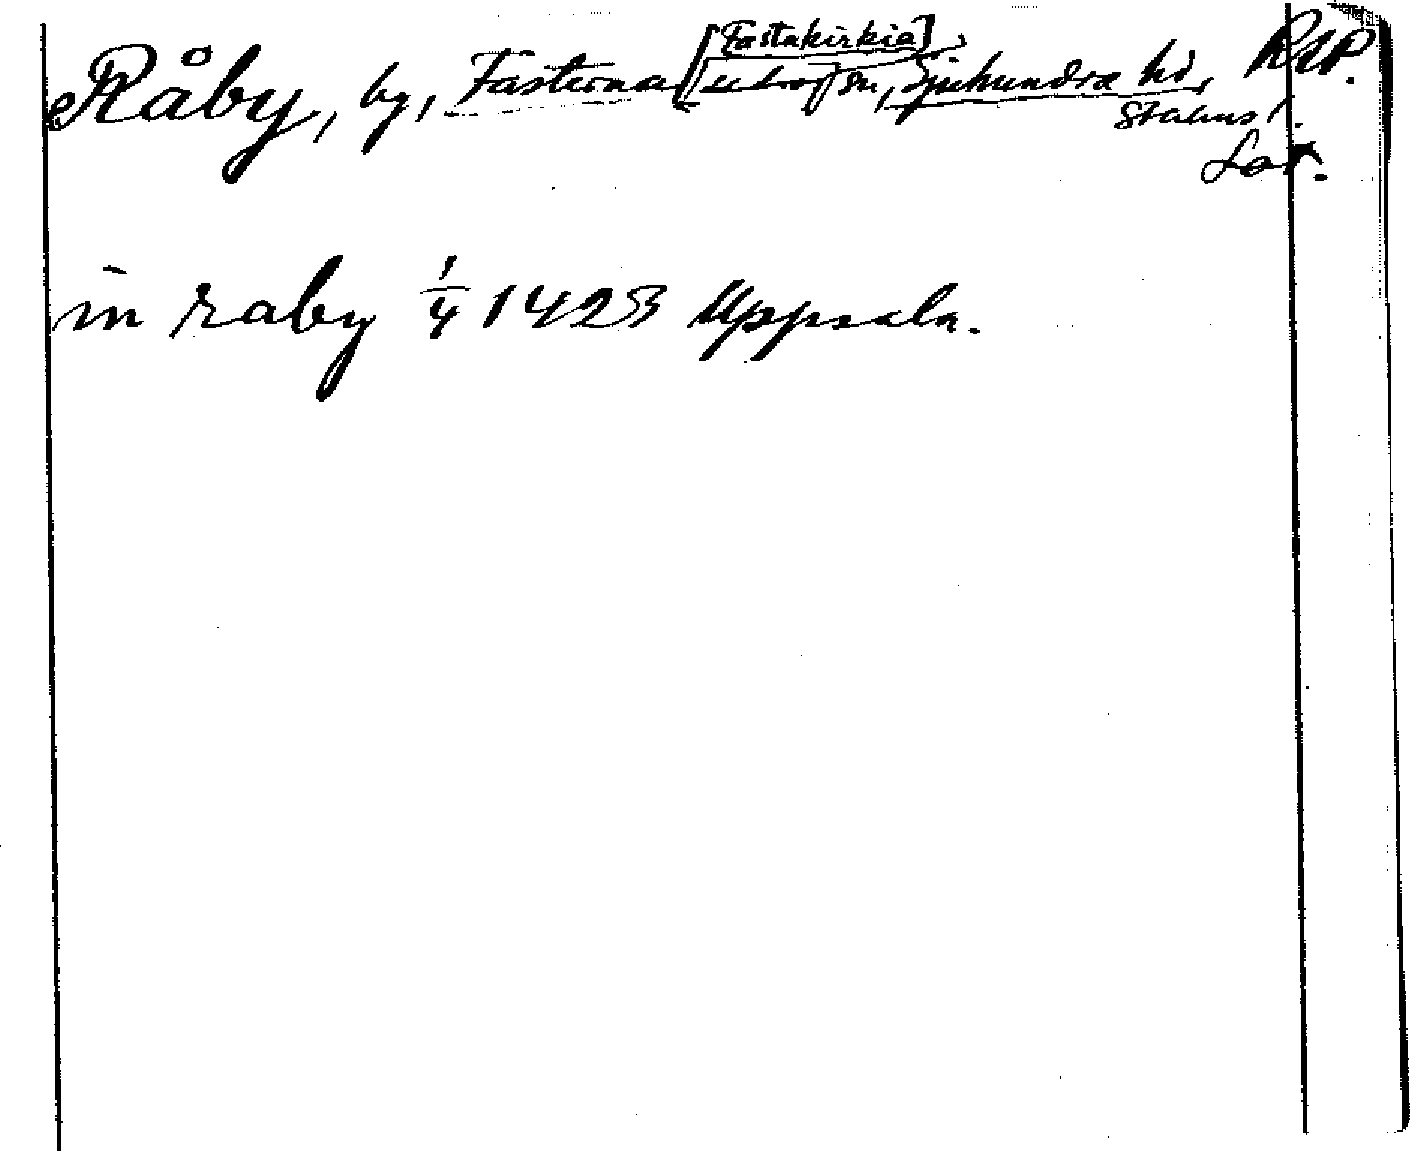 Råby, by, Fasterna [Fastakirkia] sn, Sjuhundra hd, RAP.
Sthms l.
Lör.
in raby 1/4 1423 Uppsala.